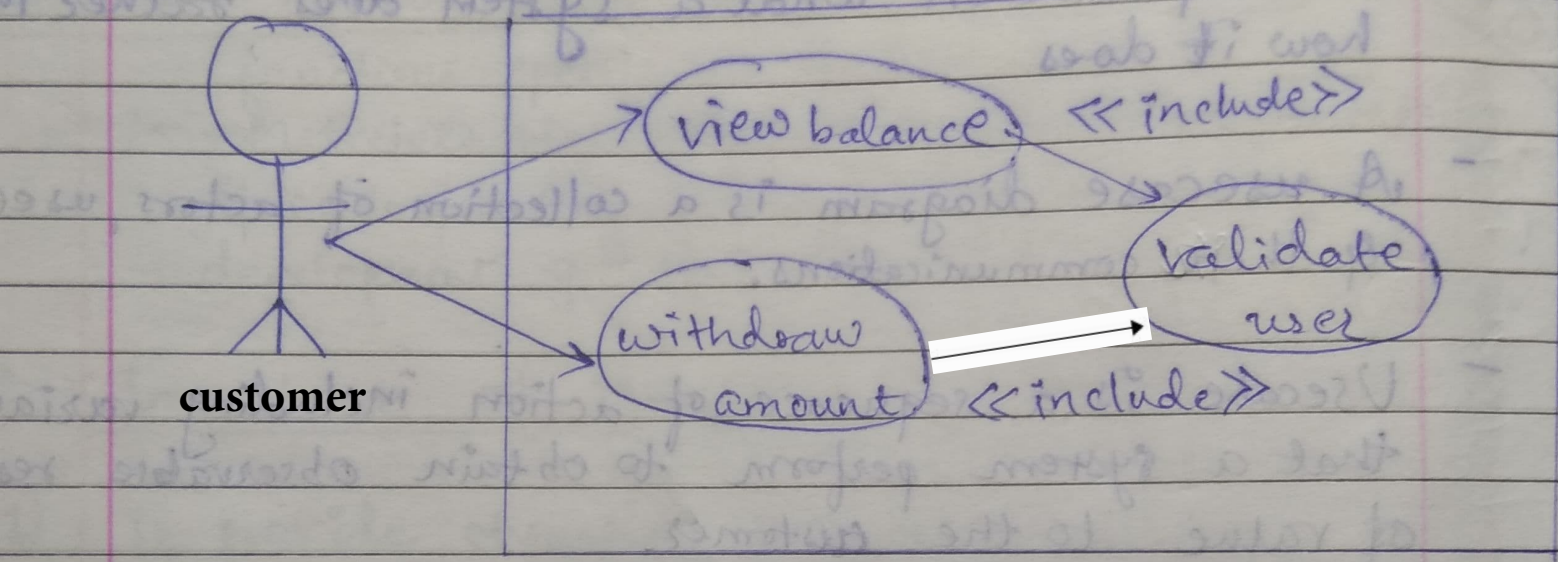 view balance
<<include>>
validate
user
withdraw
amount
<<include>>
customer